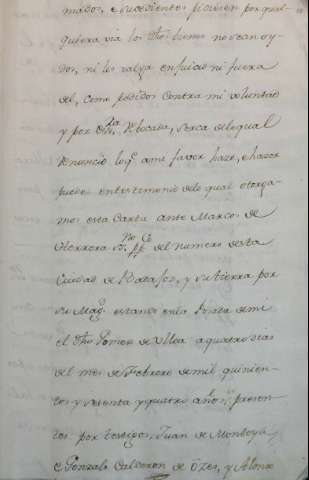 mados, e sucedientes pidiesen por qual-
quiera via los dhos bienes no sean oy-
dos, ni les valga en juicio ni fuera
del, como pedidos contra mi voluntad
y por cosa, cerca de lo qual
renuncio lo q.e a mi favor haze, e hazer
puede en testimonio de lo qual otorga-
mos esta Carta ante Marcos de
Herrera ss.no pp.co del numero desta
Ciudad de Badajoz, y su tierra por
su Mag.d estando en la Posada de mi
el dho Gomez de Ulloa a quatro dias
del mes de Febrero de mil quinien-
tos y setenta y quatro años, presen-
tes por testigos, Juan de Montoya,
e Gonzalo Calderon de y Alonso